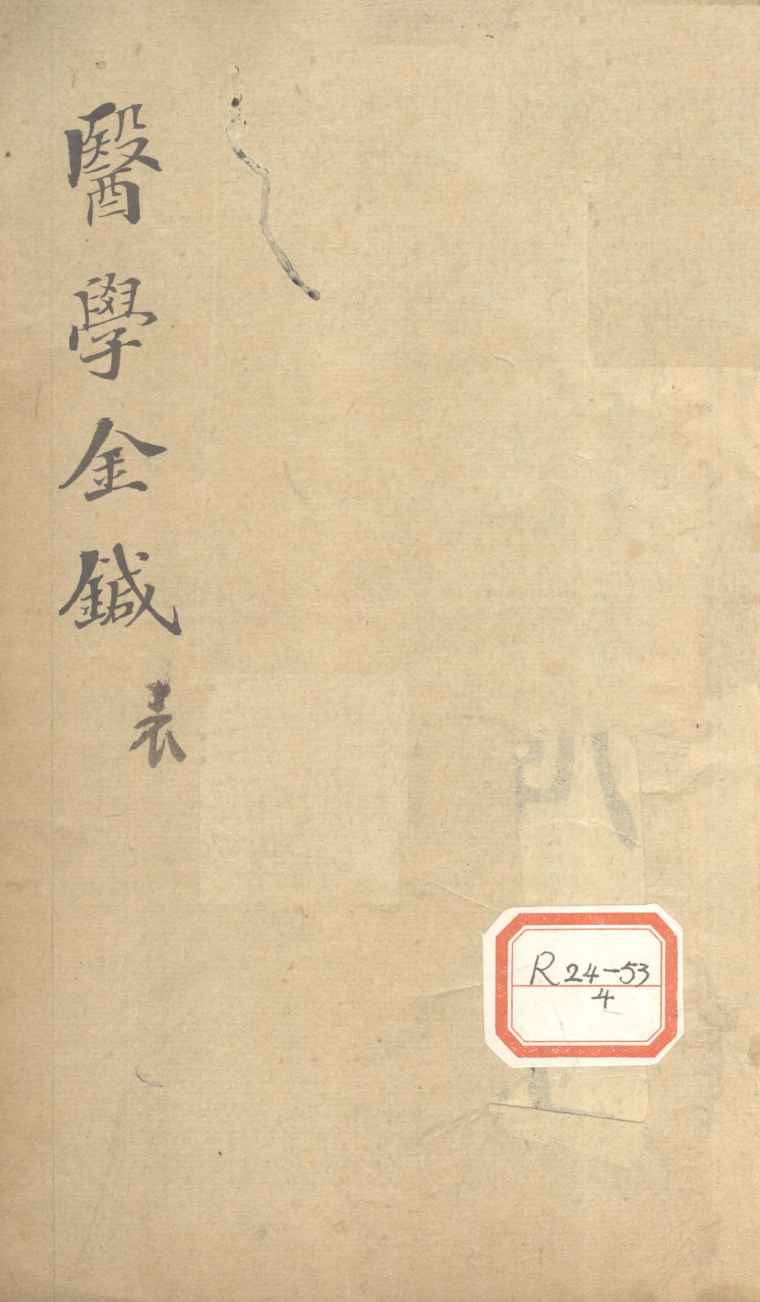 醫學金鍼
表
R 24-53
4